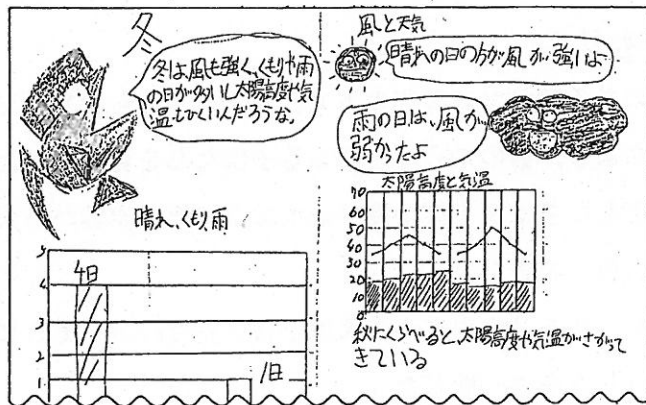 冬
冬は風も強く、くもりや雨
の日が多いし太陽高度や気
温もひくいんだろうな。
晴れ、くもり、雨
5
4日
4
3
2
1
1日
風と天気
晴れの日の方が風が強いよ
雨の日は、風が
弱かったよ
太陽高度と気温
70
60
50
40
30
20
10
0
秋にくらべると、太陽高度や気温がさがって
きている